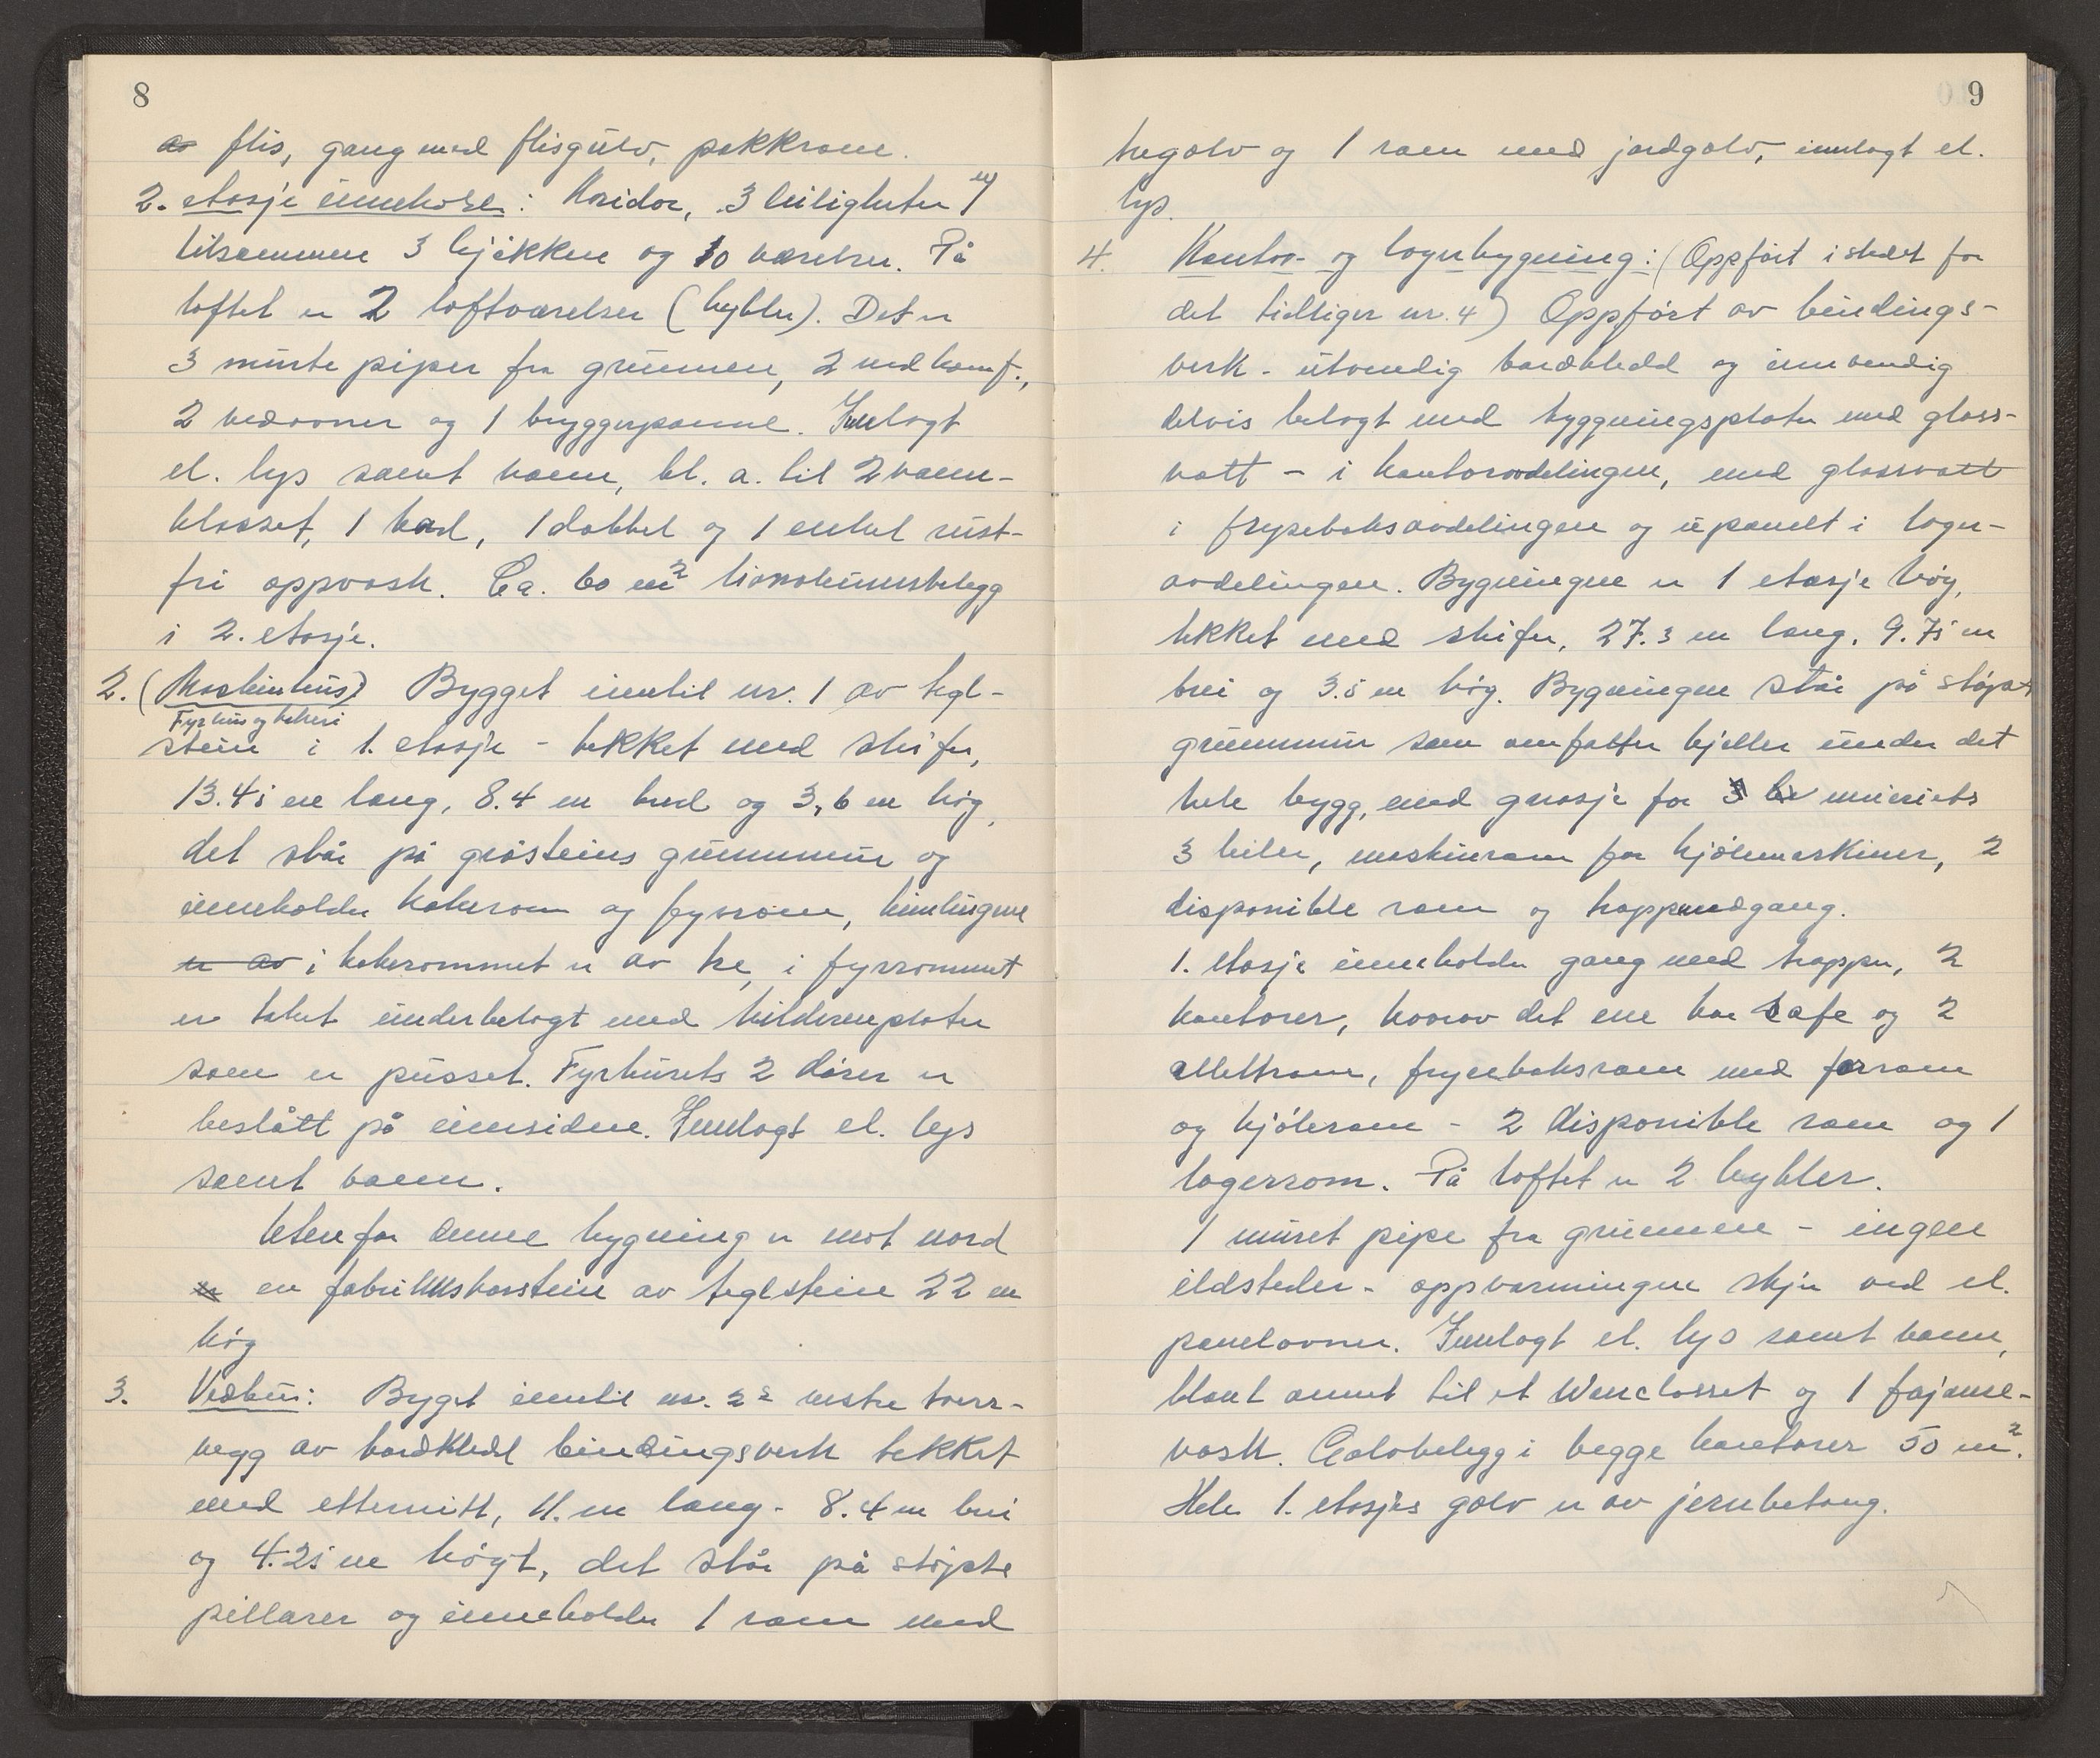 8
av flis, gang med flisgulv, pakkrom.
2. etasje innehold: Koridor, 3 leiligheter m/
tilsammen 3 kjøkken og 10 værelser. På
loftet er 2 loftværelser (hybler). Det er
3 murte piper fra grunnen, 2 med komf.,
2 vedovner og 1 bryggepanne. Innlagt
el. lys samt vann, bl. a. til 2 vann-
klosset, 1 bad, 1 dobbel og 1 enkel rust-
fri oppvask. Ca. 60 m² linoleumsbelegg
i 2. etasje.
2. (Maskinhus) Bygget inntil nr. 1 av tegl-
Fyrhus og kokeri
stein i 1. etasje - tekket med skifer,
13.45 m lang, 8.4 m bred og 3,6 m høg,
det står på gråsteins grunnmur og
inneholder kokerom og fyrrom, himlingene
er av i kokerommet er av tre, i fyrrommet
er taket underbelagt med
som er pusset. Fyrhusets 2 dører er
beslått på innsidene. Innlagt el. lys
samt vann.
Utenfor denne bygning er mot nord
er en fabrikkskorstein av teglstein 22 m
høg
3. Vedhus: Bygt inntil nr. 2s vestre tverr-
vegg av bordkledd bindingsverk tekket
med etternitt, 11. m lang - 8.4 m brei
og 4.25 m høgt, det står på støpte
pillarer og inneholder 1 rom med
9
tregolv og 1 rom med jordgolv, innlagt el.
lys.
4. Kontor- og lagerbygning: (Oppført i stedet for
det tidligere nr. 4) Oppført av bindings-
verk - utvendig bordkledd og innvendig
delvis belagt med bygningsplater med glass-
vatt - i kontoravdelingen, med glassvatt
i fryseboksavdelingen og upanelt i lager-
avdelingen. Bygningen er 1 etasje høg,
tekket med skifer, 27.3 m lang, 9.75 m
brei og 3.5 m høg. Bygningen står på støpt
grunnmur som omfatter kjeller under det
hele bygg, med garasje for 3 bi meieriets
3 biler, maskinrom for kjølemaskiner, 2
disponible rom og trappenedgang.
1. etasje inneholder gang med trapper, 2
kontorer, hvorav det ene har safe og 2
toalettrom, fryseboksrom med forrom
og kjølerom - 2 disponible rom og 1
lagerrom. På loftet er 2 hybler.
1 muret pipe fra grunnen - ingen
ildsteder - oppvarmingen skjer ved el.
panelovner. Innlagt el. lys samt vann,
blant annet til et Wanclosset og 1 fajanse-
vask. Golvbelegg i begge kontorer 50 m².
Hele 1. etasjes golv er av jernbetong.